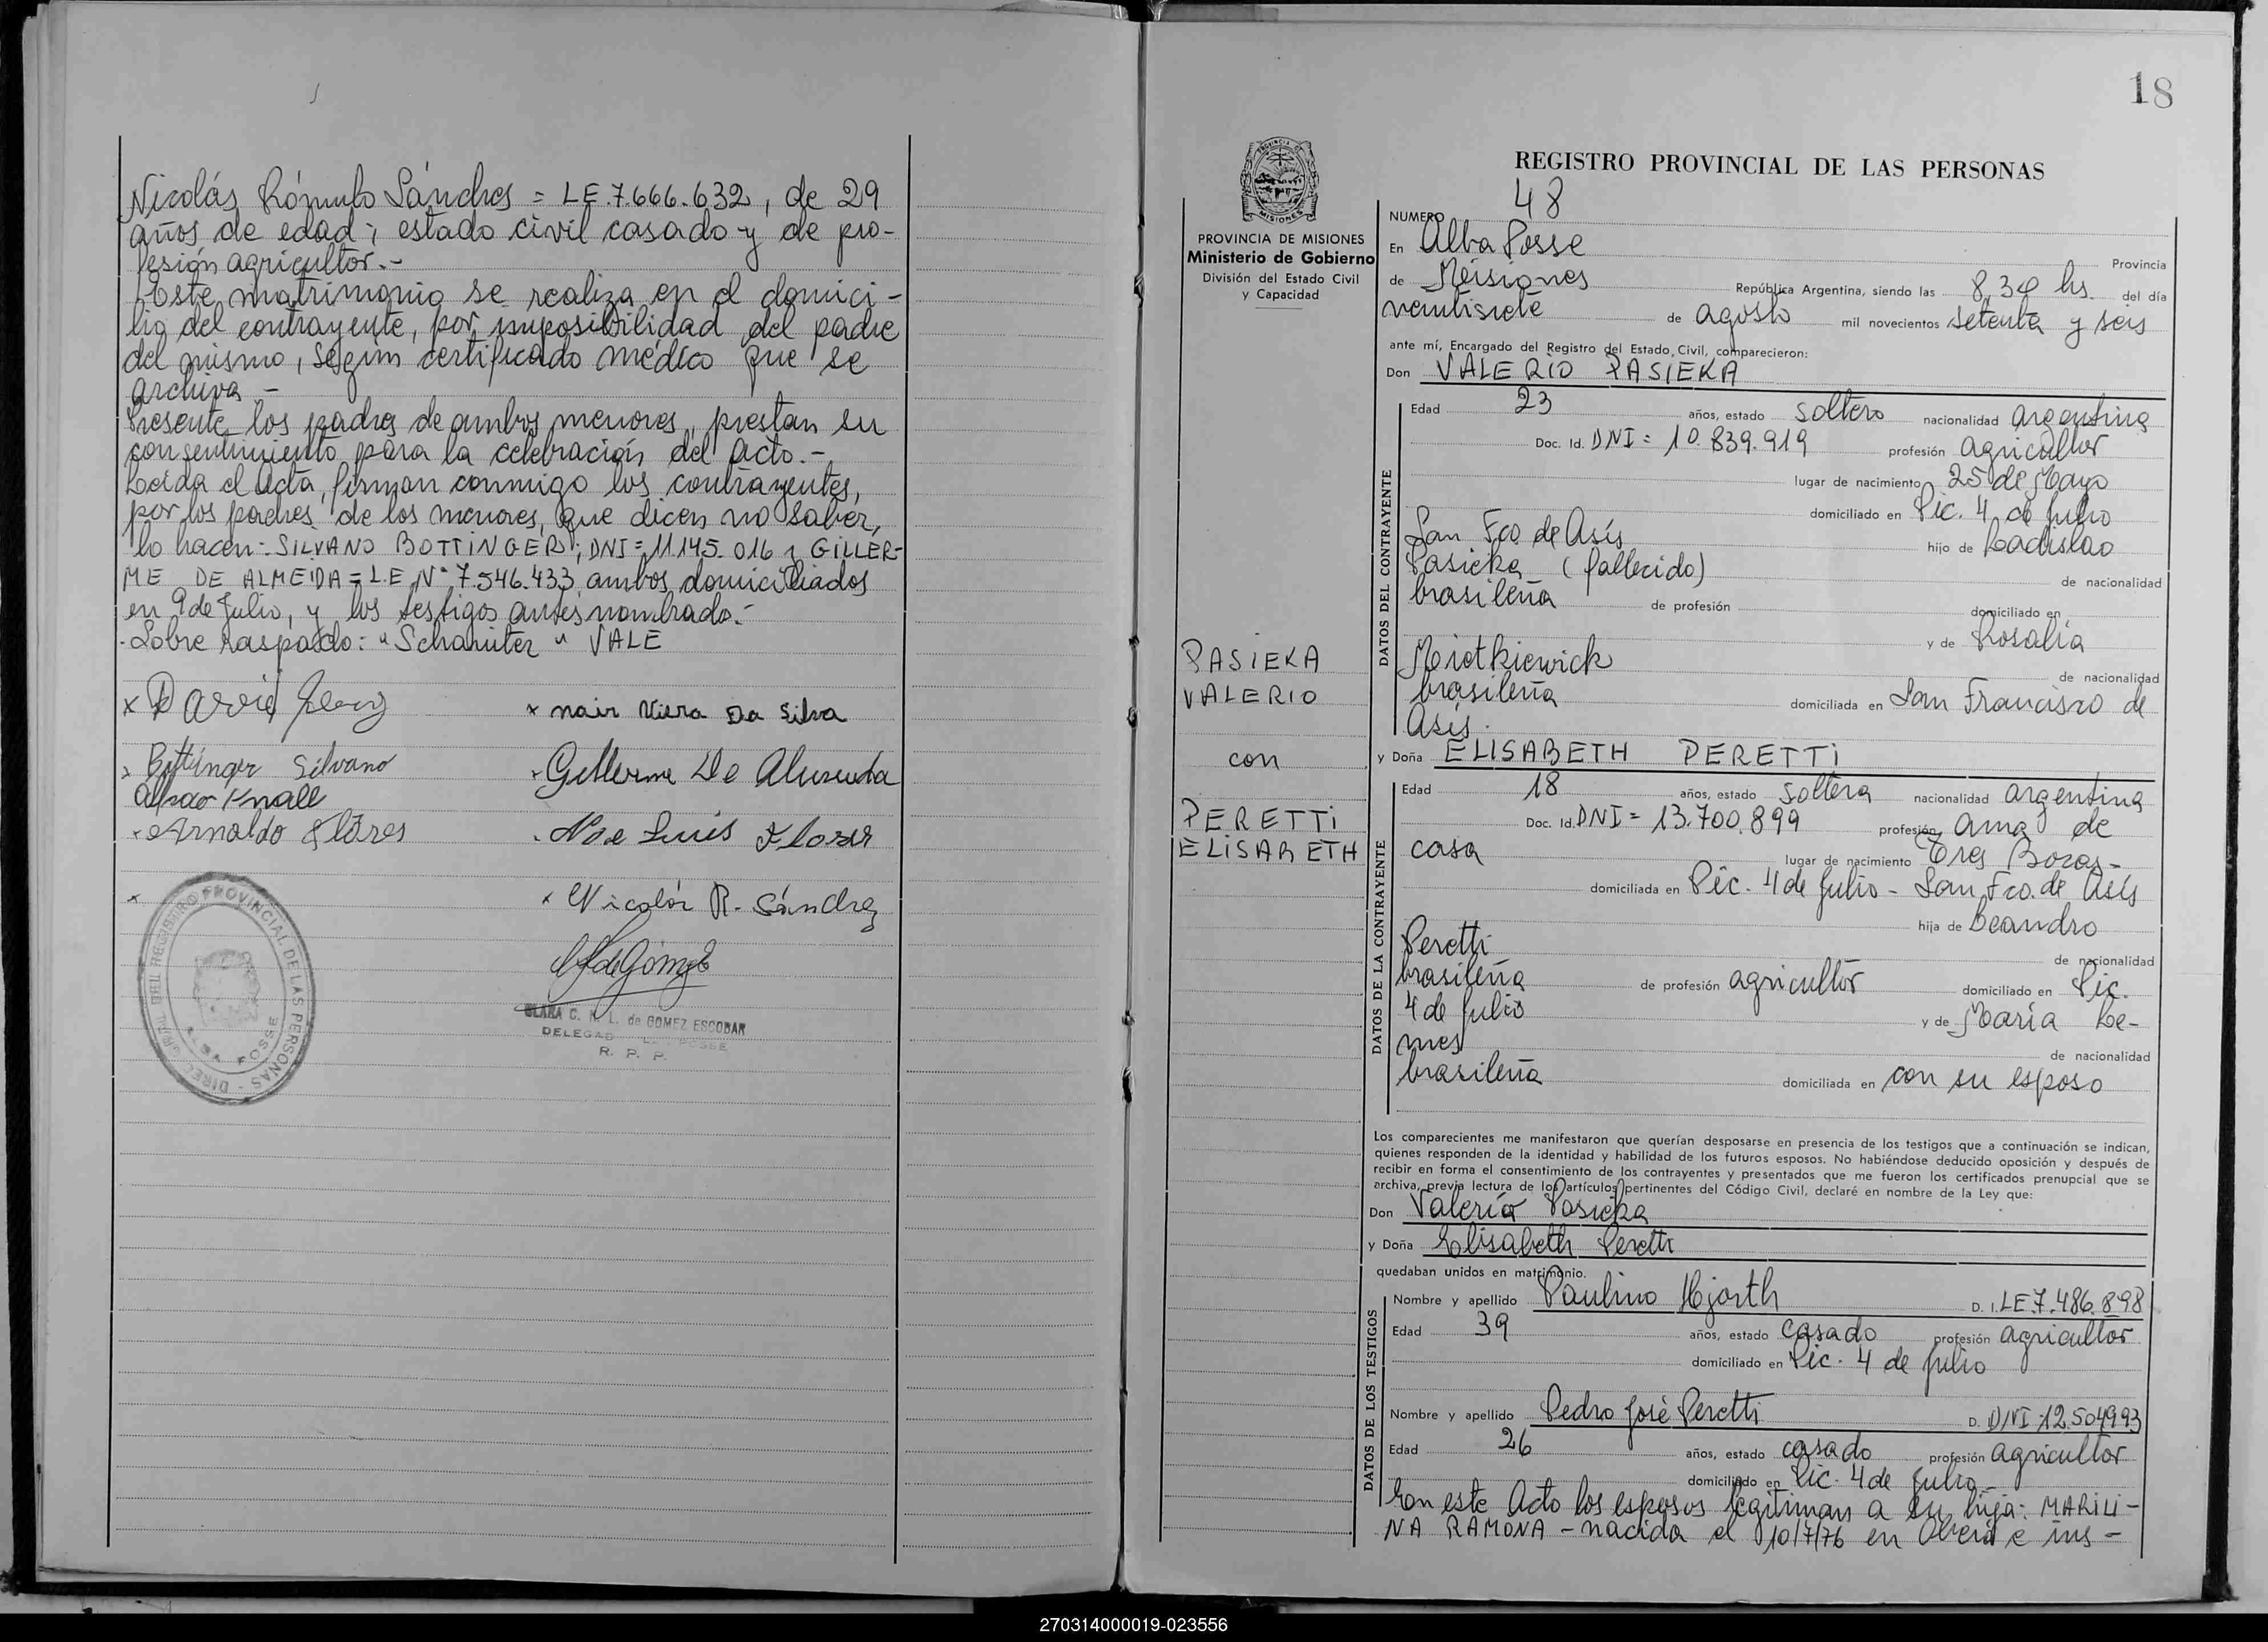 Nicolás Rómulo Sánches = LE.7.666.632, de 29
años de edad; estado civil casado y de pro-
fesión agricultor.-
Este matrimonio se realiza en el domici-
lio del contrayente, por imposibilidad del padre
del mismo, según certificado médico que se
archiva -
Presente los padres de ambos menores, prestan su
consentimiento para la celebración del acto.-
Leída el Acta, firman conmigo los contrayentes,
por los padres de los menores, que dicen no saber,
lo hacen: SILVANO BOTTINGER; DNI = 11.145.016 y GILLER-
ME DE ALMEIDA = L.E Nº 7.546.433 ambos domiciliados
en 9 de Julio, y los testigos antes nombrado.-
-Sobre raspado: "Schaniter" VALE
x x nair Viera Da Silva
Bottinger Silvano Gillerme De Almeida
Knall
Arnaldo Flôres Noe Luis Flores
x x Nicolás R. Sánchez
CLARA C. K. L. de GOMEZ ESCOBAR
DELEGAD POSSE
R. P. P.
DIREC GRAL DEL REGISTRO PROVINCIAL DE LAS PERSONAS -
ALBA POSSE
18
MISIONES
PROVINCIA DE MISIONES
Ministerio de Gobierno
División del Estado Civil
y Capacidad
PASIEKA
VALERIO
con
PERETTI
ELISABETH
REGISTRO PROVINCIAL DE LAS PERSONAS
NUMERO 48
En Alba Posse Provincia
de Misiones República Argentina, siendo las 8,30 hs. del día
veintisiete de agosto mil novecientos setenta y seis
ante mí, Encargado del Registro del Estado Civil, comparecieron:
Don VALERIO PASIEKA
DATOS DEL CONTRAYENTE
Edad 23 años, estado soltero nacionalidad argentina
Doc. Id. DNI = 10.839.919 profesión agricultor
lugar de nacimiento 25 de Mayo
domiciliado en Pic. 4 de Julio
San Fco. de Asís hijo de Ladislao
Pasieka (fallecido) de nacionalidad
brasileña de profesión domiciliado en
y de Rosalía
Meretkiewick de nacionalidad
brasileña domiciliada en San Francisco de
Asís.
y Doña ELISABETH PERETTI
DATOS DE LA CONTRAYENTE
Edad 18 años, estado soltera nacionalidad argentina
Doc. Id. DNI = 13.700.899 profesión ama de
casa lugar de nacimiento Tres Bocas-
domiciliada en Pic. 4 de Julio - San Fco. de Asís
hija de Leandro
Peretti de nacionalidad
brasileña de profesión agricultor domiciliado en Pic.
4 de Julio y de María Le-
mes de nacionalidad
brasileña domiciliada en con su esposo
Los comparecientes me manifestaron que querían desposarse en presencia de los testigos que a continuación se indican,
quienes responden de la identidad y habilidad de los futuros esposos. No habiéndose deducido oposición y después de
recibir en forma el consentimiento de los contrayentes y presentados que me fueron los certificados prenupcial que se
archiva, previa lectura de los artículos pertinentes del Código Civil, declaré en nombre de la Ley que:
Don Valerio Pasieka
y Doña Elisabeth Peretti
quedaban unidos en matrimonio.
DATOS DE LOS TESTIGOS
Nombre y apellido Paulino Hjorth D. I. LE 7.486.898
Edad 39 años, estado casado profesión agricultor
domiciliado en Pic. 4 de Julio
Nombre y apellido Pedro José Peretti D. DNI:12.504993
Edad 26 años, estado casado profesión agricultor
domiciliado en Pic. 4 de Julio
Con este Acto los esposos legitiman a su hija: MARILI-
NA RAMONA - nacida el 10/7/76 en Oberá e ins-
270314000019-023556